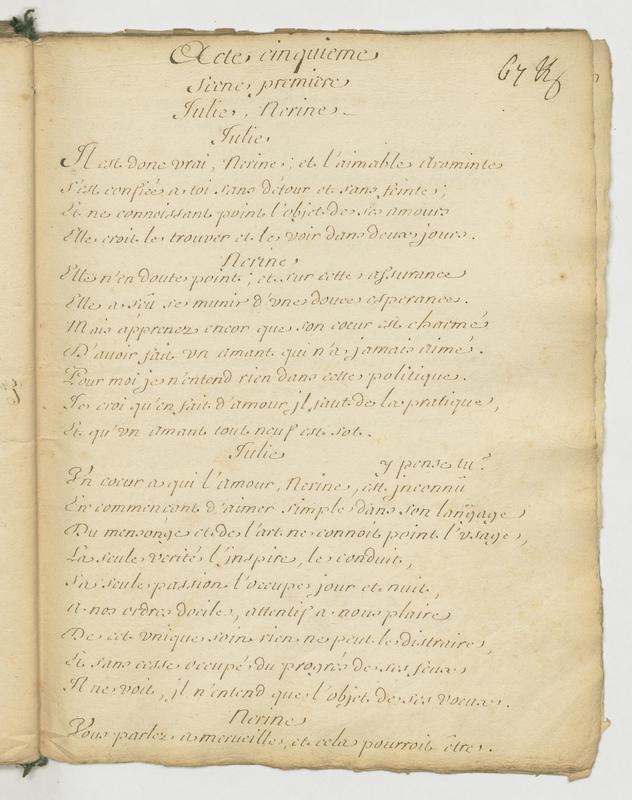 Acte cinquieme
67
Scene premiere
Julie, Nerine.
Julie
Il est donc vrai, Nerine; et l'aimable Araminte
s'est confiée a toi sans détour et sans feinte;
Et ne connoissant point l'objet de ses amours
Elle croit le trouver et le voir dans deux jours.
Nerine
Elle n'en doute point; et sur cette assurance
Elle a sçû se munir d'vne douce esperance.
Mais apprenez encor que son coeur est charmé
D'avoir fait vn amant qui n'a jamais aimé.
Pour moi je n'entend rien dans cette politique.
Je croi qu'en fait d'amour jl faut de la pratique,
Et qu'vn amant tout neuf est sot.
Julie
y pense tu?
Vn coeur a qui l'amour, Nerine, est jnconnû
En commencant d'aimer simple dans son langage
Du mensonge et de l'art ne connoit point l'vsage,
La seule verité l'jnspire, le conduit,
Sa seule passion l'occupe jour et nuit,
A nos ordres docile, attentif a nous plaire
De cet vnique soin rien ne peut le distraire,
Et sans cesse occupé du progrés de ses feux
Il ne voit, jl n'entend que l'objet de ses voeux.
Nerine
Vous parlez a merueille, et cela pourroit être.